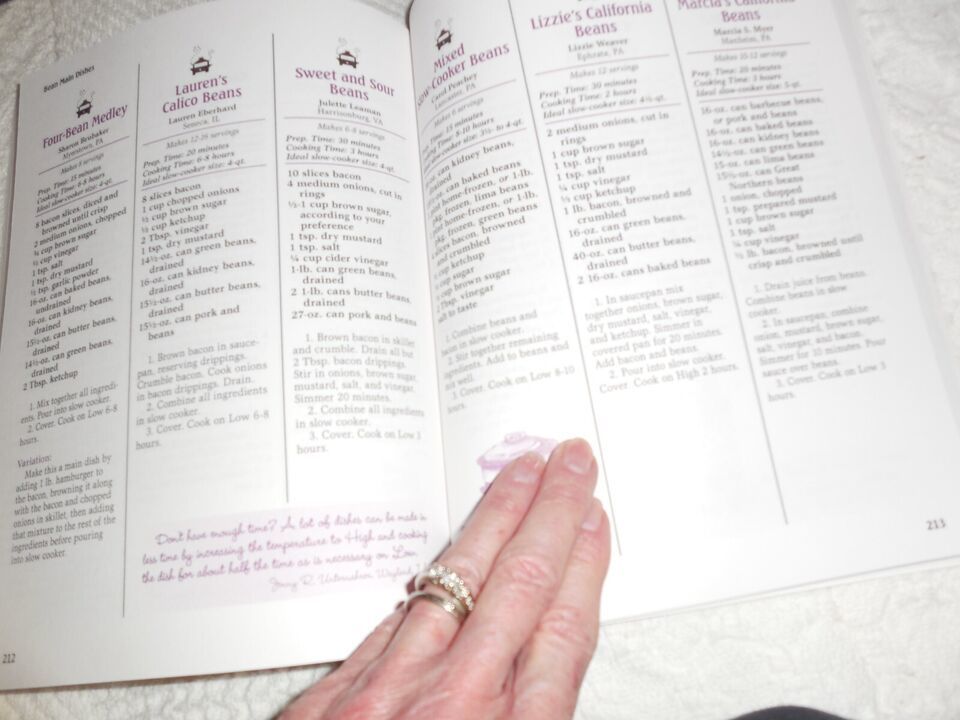 Bean Main Dishes
Four-Bean Medley
Sharon Brubaker
Myerstown, PA
Makes 8 servings
Prep. Time: 15 minutes
Cooking Time: 6-8 hours
Ideal slow-cooker size: 4-qt.
8 bacon slices, diced and
browned until crisp
2 medium onions, chopped
¾ cup brown sugar
½ cup vinegar
1 tsp. salt
1 tsp. dry mustard
½ tsp. garlic powder
16-oz. can baked beans,
undrained
16-oz. can kidney beans,
drained
15½-oz. can butter beans,
drained
14½-oz. can green beans,
drained
2 Tbsp. ketchup
1. Mix together all ingredi-
ents. Pour into slow cooker.
2. Cover. Cook on Low 6-8
hours.
Variation:
Make this a main dish by
adding 1 lb. hamburger to
the bacon, browning it along
with the bacon and chopped
onions in skillet, then adding
that mixture to the rest of the
ingredients before pouring
into slow cooker.
212
Lauren's
Calico Beans
Lauren Eberhard
Seneca, IL
Makes 12-16 servings
Prep. Time: 20 minutes
Cooking Time: 6-8 hours
Ideal slow-cooker size: 4-qt.
8 slices bacon
1 cup chopped onions
½ cup brown sugar
½ cup ketchup
2 Tbsp. vinegar
1 tsp. dry mustard
14½-oz. can green beans,
drained
16-oz. can kidney beans,
drained
15½-oz. can butter beans,
drained
15½-oz. can pork and
beans
1. Brown bacon in sauce-
pan, reserving drippings.
Crumble bacon. Cook onions
in bacon drippings. Drain.
2. Combine all ingredients
in slow cooker.
3. Cover. Cook on Low 6-8
hours.
Sweet and Sour
Beans
Julette Leaman
Harrisonburg, VA
Makes 6-8 servings
Prep. Time: 30 minutes
Cooking Time: 3 hours
Ideal slow-cooker size: 4-qt.
10 slices bacon
4 medium onions, cut in
rings
½-1 cup brown sugar,
according to your
preference
1 tsp. dry mustard
1 tsp. salt
¼ cup cider vinegar
1-lb. can green beans,
drained
2 1-lb. cans butter beans,
drained
27-oz. can pork and beans
1. Brown bacon in skillet
and crumble. Drain all but
2 Tbsp. bacon drippings.
Stir in onions, brown sugar,
mustard, salt, and vinegar.
Simmer 20 minutes.
2. Combine all ingredients
in slow cooker.
3. Cover. Cook on Low 3
hours.
Don't have enough time? A lot of dishes can be made in
less time by increasing the temperature to High and cooking
the dish for about half the time as is necessary on Low.
Jenny R. Unternahrer, Wayland,
Mixed
Slow-Cooker Beans
Carol Peachey
Lancaster, PA
Makes 6 servings
Time: 15 minutes
Time: 8-10 hours
slow-cooker size: 3½- to 4-qt.
can kidney beans,
drained
can baked beans
home-frozen, or 1-lb.
pkg. frozen, lima beans
home-frozen, or 1-lb.
pkg. frozen, green beans
slices bacon, browned
and crumbled
cup ketchup
cup sugar
cup brown sugar
Tbsp. vinegar
salt to taste
1. Combine beans and
bacon in slow cooker.
2. Stir together remaining
ingredients. Add to beans and
mix well.
3. Cover. Cook on Low 8-10
hours.
Lizzie's California
Beans
Lizzie Weaver
Ephrata, PA
Makes 12 servings
Prep. Time: 30 minutes
Cooking Time: 2 hours
Ideal slow-cooker size: 4½-qt.
2 medium onions, cut in
rings
1 cup brown sugar
1 tsp. dry mustard
1 tsp. salt
¼ cup vinegar
⅓ cup ketchup
1 lb. bacon, browned and
crumbled
16-oz. can green beans,
drained
40-oz. can butter beans,
drained
2 16-oz. cans baked beans
1. In saucepan mix
together onions, brown sugar,
dry mustard, salt, vinegar,
and ketchup. Simmer in
covered pan for 20 minutes.
Add bacon and beans.
2. Pour into slow cooker.
Cover. Cook on High 2 hours.
Marcia's California
Beans
Marcia S. Myer
Manheim, PA
Makes 10-12 servings
Prep. Time: 25 minutes
Cooking Time: 3 hours
Ideal slow-cooker size: 5-qt.
16-oz. can barbecue beans,
or pork and beans
16-oz. can baked beans
16-oz. can kidney beans
14½-oz. can green beans
15-oz. can lima beans
15½-oz. can Great
Northern beans
1 onion, chopped
1 tsp. prepared mustard
1 cup brown sugar
1 tsp. salt
¼ cup vinegar
½ lb. bacon, browned until
crisp and crumbled
1. Drain juice from beans.
Combine beans in slow
cooker.
2. In saucepan, combine
onion, mustard, brown sugar,
salt, vinegar, and bacon.
Simmer for 10 minutes. Pour
sauce over beans.
3. Cover. Cook on Low 3
hours.
213